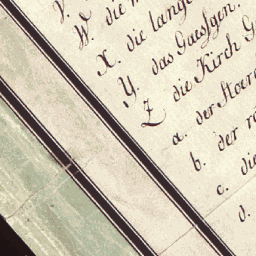 V.
W. die
X. die lange
Y. das Gaessgen.
Z die Kirch
a. der
b. der
c. die
d.